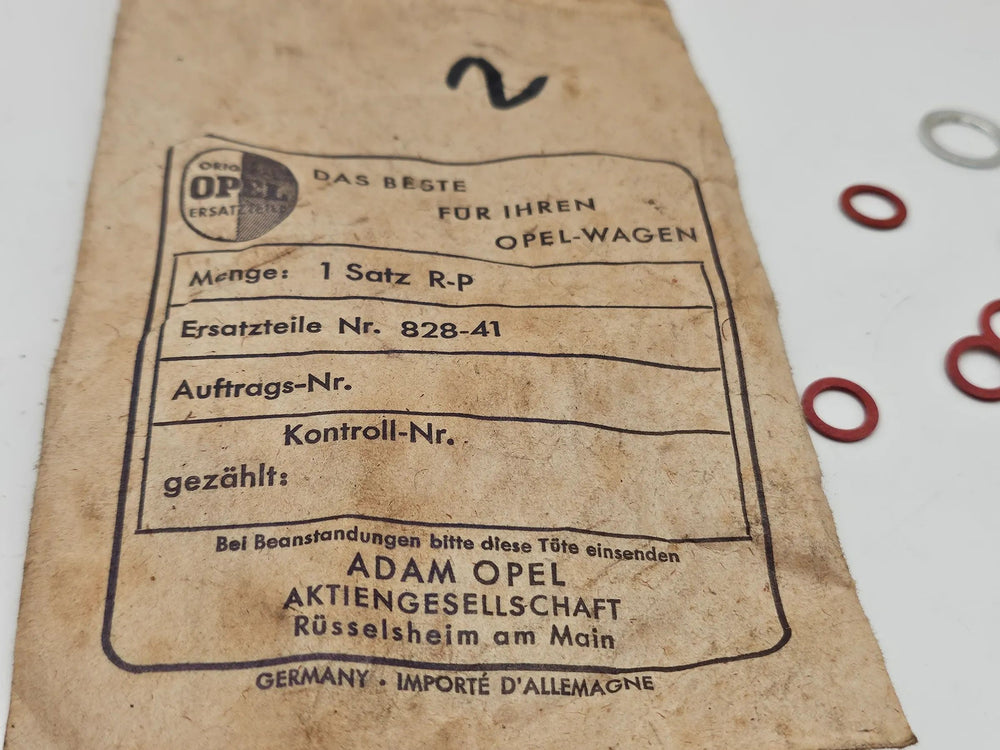 2
ORIG
OPEL
ERSATZTEILE
DAS BESTE
FÜR IHREN
OPEL-WAGEN
Menge: 1 Satz R-P
Ersatzteile Nr. 828-41
Auftrags-Nr.
Kontroll-Nr.
gezählt:
Bei Beanstandungen bitte diese Tüte einsenden
ADAM OPEL
AKTIENGESELLSCHAFT
Rüsselsheim am Main
GERMANY • IMPORTÉ D'ALLEMAGNE